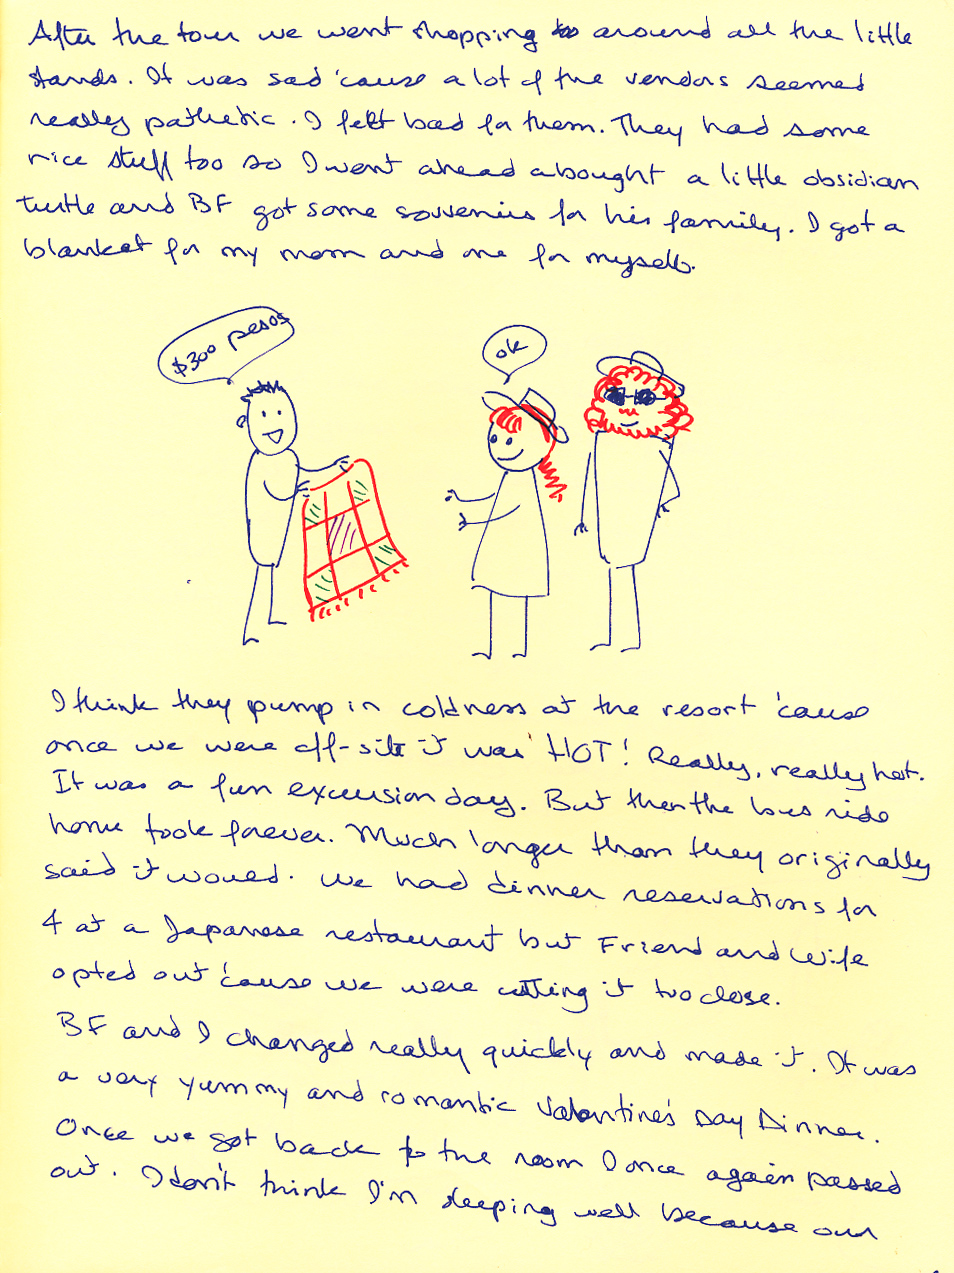 After the tour we went shopping around all the little
stands. It was sad 'cause a lot of the vendors seemed
really pathetic. I felt bad for them. They had some
nice stuff too so I went ahead a bought a little obsidian
turtle and BF got some souvenirs for his family. I got a
blanket for my mom and one for myself.
$300 pesos
ok
I think they pump in coldness at the resort 'cause
once we were off-site it was HOT! Really, really hot.
It was a fun excursion day. But then the bus ride
home took forever. Much longer than they originally
said it would. We had dinner reservations for
4 at a Japanese restaurant but Friend and Wife
opted out 'cause we were cutting it too close.
BF and I changed really quickly and made it. It was
a very yummy and romantic Valentine's Day Dinner.
Once we got back to the room I once again passed
out. I don't think I'm sleeping well because our